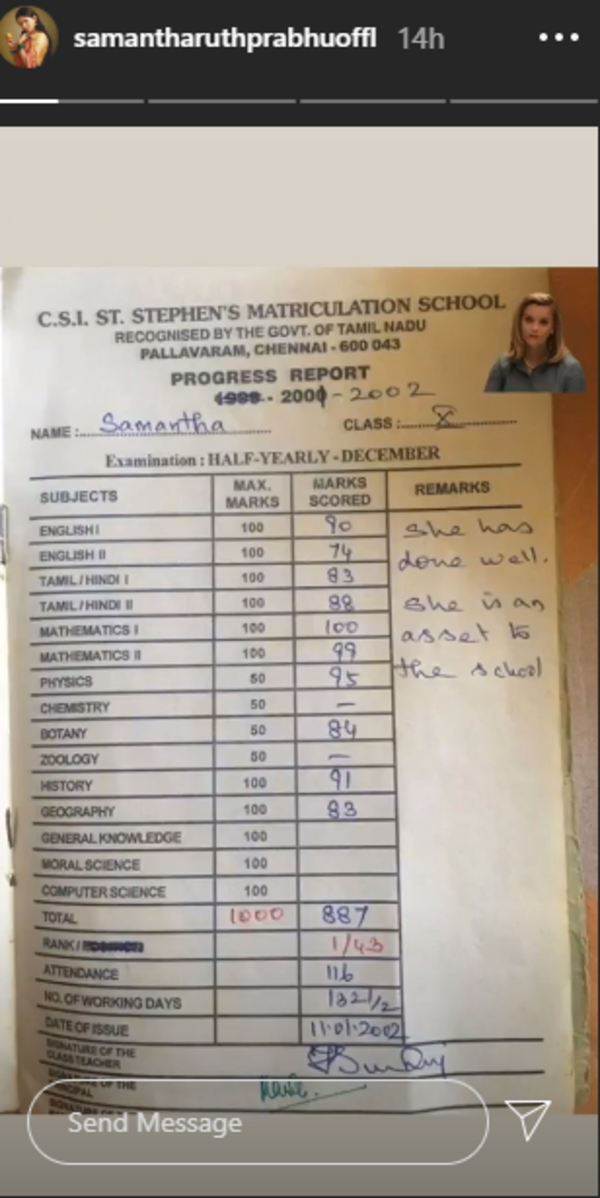 samantharuthprabhuoffl 14h
C.S.I. ST. STEPHEN'S MATRICULATION SCHOOL
RECOGNISED BY THE GOVT. OF TAMIL NADU
PALLAVARAM, CHENNAI - 600 043
PROGRESS REPORT
1999 - 2000 - 2002
NAME : Samantha CLASS : X
Examination : HALF-YEARLY - DECEMBER
SUBJECTS MAX. MARKS MARKS SCORED REMARKS
ENGLISH I 100 90 She has
ENGLISH II 100 74 done well.
TAMIL / HINDI I 100 83
TAMIL / HINDI II 100 88 She is an
MATHEMATICS I 100 100 asset to
MATHEMATICS II 100 99
PHYSICS 50 95 the school
CHEMISTRY 50 —
BOTANY 50 84
ZOOLOGY 50 —
HISTORY 100 91
GEOGRAPHY 100 83
GENERAL KNOWLEDGE 100
MORAL SCIENCE 100
COMPUTER SCIENCE 100
TOTAL 1000 887
RANK / 1/43
ATTENDANCE 116
NO. OF WORKING DAYS 132 1/2
DATE OF ISSUE 11.01.2002
SIGNATURE OF THE
CLASS TEACHER
SIGNATURE OF THE
PRINCIPAL
Send Message